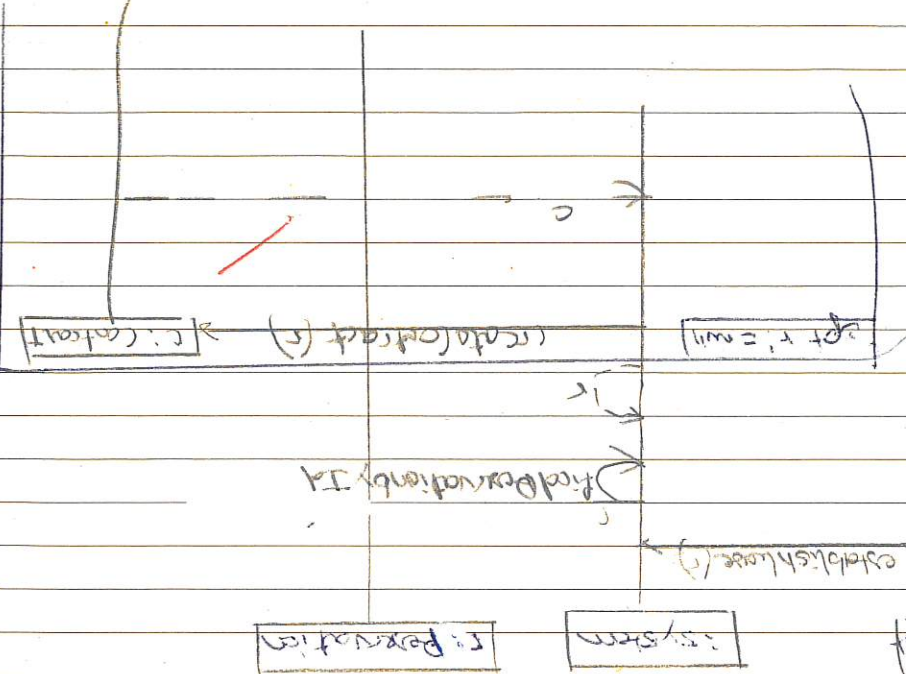 :System
r:Reservation
establishLease(r)
findReservationby Id
r
opt r != null
createContract(r)
c:Contract
c